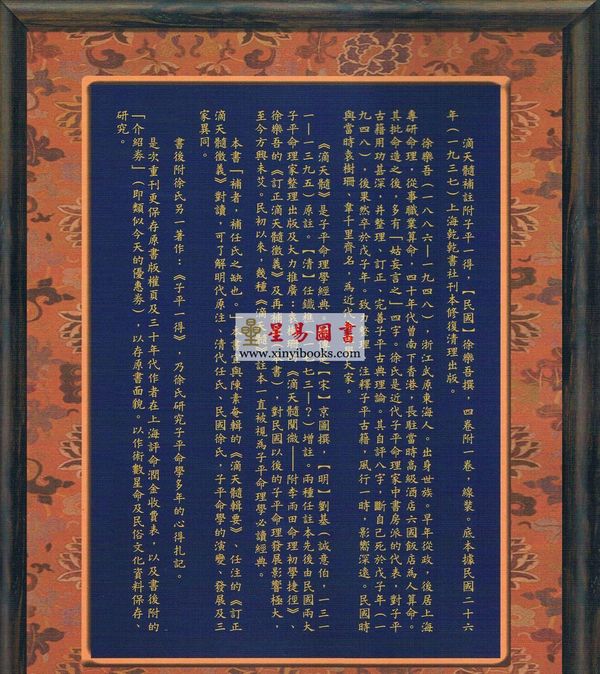 滴天髓補註附子平一得，【民國】徐樂吾撰，四卷附一卷，線裝。底本據民國二十六
年（一九三七）上海乾乾書社刊本修復清理出版。
徐樂吾（一八八六—一九四八），浙江武原東海人。出身世族。早年從政，後居上海
專研命理，從事職業算命，四十年代曾南下香港，長駐當時高級酒店六國飯店為人算命。
其批命造之後，多有「姑妄言之」四字。徐氏是近代子平命理家中書房派的代表，對子平
古籍用功甚深，并整理、訂正、完善子平古典理論。其自評八字，斷自己死於戊子年（一
九四八），後果然卒於戊子年。致力整理、注釋子平古籍，風行一時，影響深遠。民國時
與當時袁樹珊、韋千里齊名，為近代大家。
《滴天髓》是子平命理學經典。【宋】京圖撰，【明】劉基（誠意伯，一三一
一—一三九五）原註。【清】任鐵樵（一七七三—？）增註。兩種任註本先後由民國兩大
子平命理家整理出版及大力推廣：袁樹珊《滴天髓闡微——附李雨田命理初學捷徑》、
徐樂吾的《訂正滴天髓徵義》及再補書），對民國以後的子平命理發展影響極大，
至今方興未艾。民初以來，幾種《滴天髓》註本一直被視為子平命理學必讀經典。
本書「補者，補任氏之缺也。」本書與陳素庵輯的《滴天髓輯要》、任注的《訂正
滴天髓徵義》對讀，可了解明代原注、清代任氏、民國徐氏，子平命學的演變、發展及三
家異同。
書後附徐氏另一著作：《子平一得》，乃徐氏研究子平命學多年的心得扎記。
是次重刊更保存原書版權頁及三十年代作者在上海評命潤金收費表，以及書後附的
「介紹券」（即類似今天的優惠券），以存原書面貌。以作術數星命及民俗文化資料保存、
研究。
星易圖書
www.xinyibooks.com